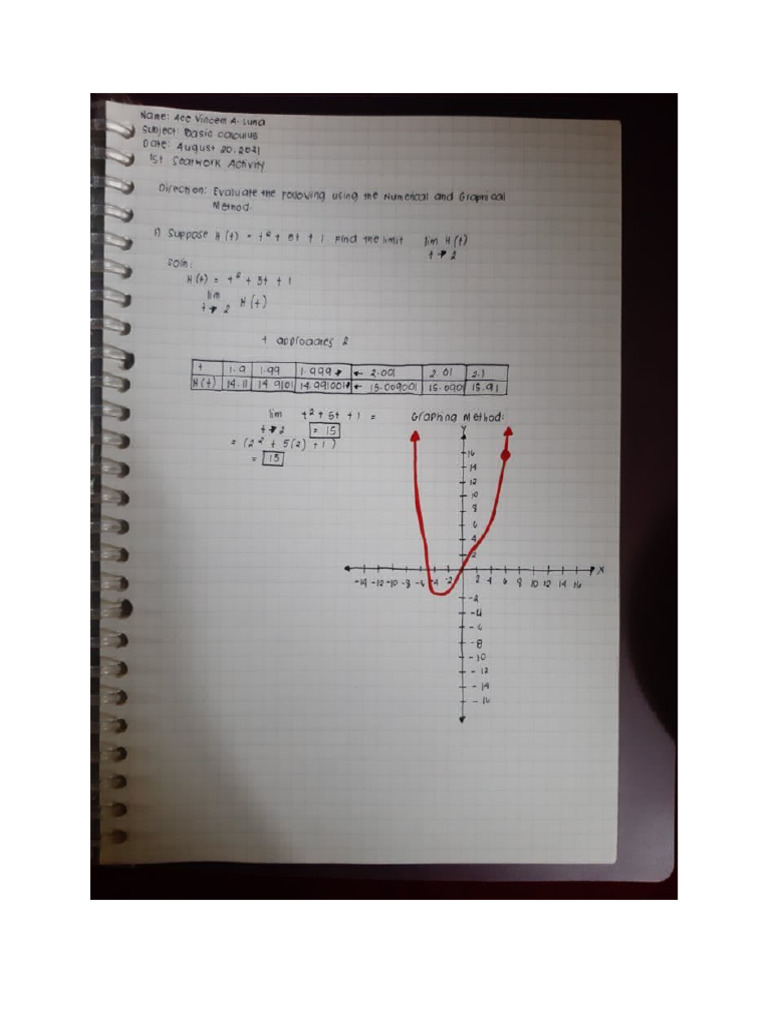 Name: Ace Vincem A. Luna
Subject: Basic Calculus
Date: August 20, 2021
1st Seatwork Activity
Direction: Evaluate the following using the Numerical and Graphical
Method.
1) Suppose H(t) = t² + 5t + 1 Find the limit lim H(t)
t → 2
Soln:
H(t) = t² + 5t + 1
lim H(t)
t → 2
t approaches 2
t 1.9 1.99 1.999 → ← 2.001 2.01 2.1
H(t) 14.11 14.9101 14.991001 → ← 15.009001 15.090 15.91
lim t² + 5t + 1 =
t → 2 = 15
= (2² + 5(2) + 1)
= 15
Graphing Method:
Y
16
14
12
10
8
6
4
2
-14 -12 -10 -8 -6 -4 -2 2 4 6 8 10 12 14 16 X
-2
-4
-6
-8
-10
-12
-14
-16